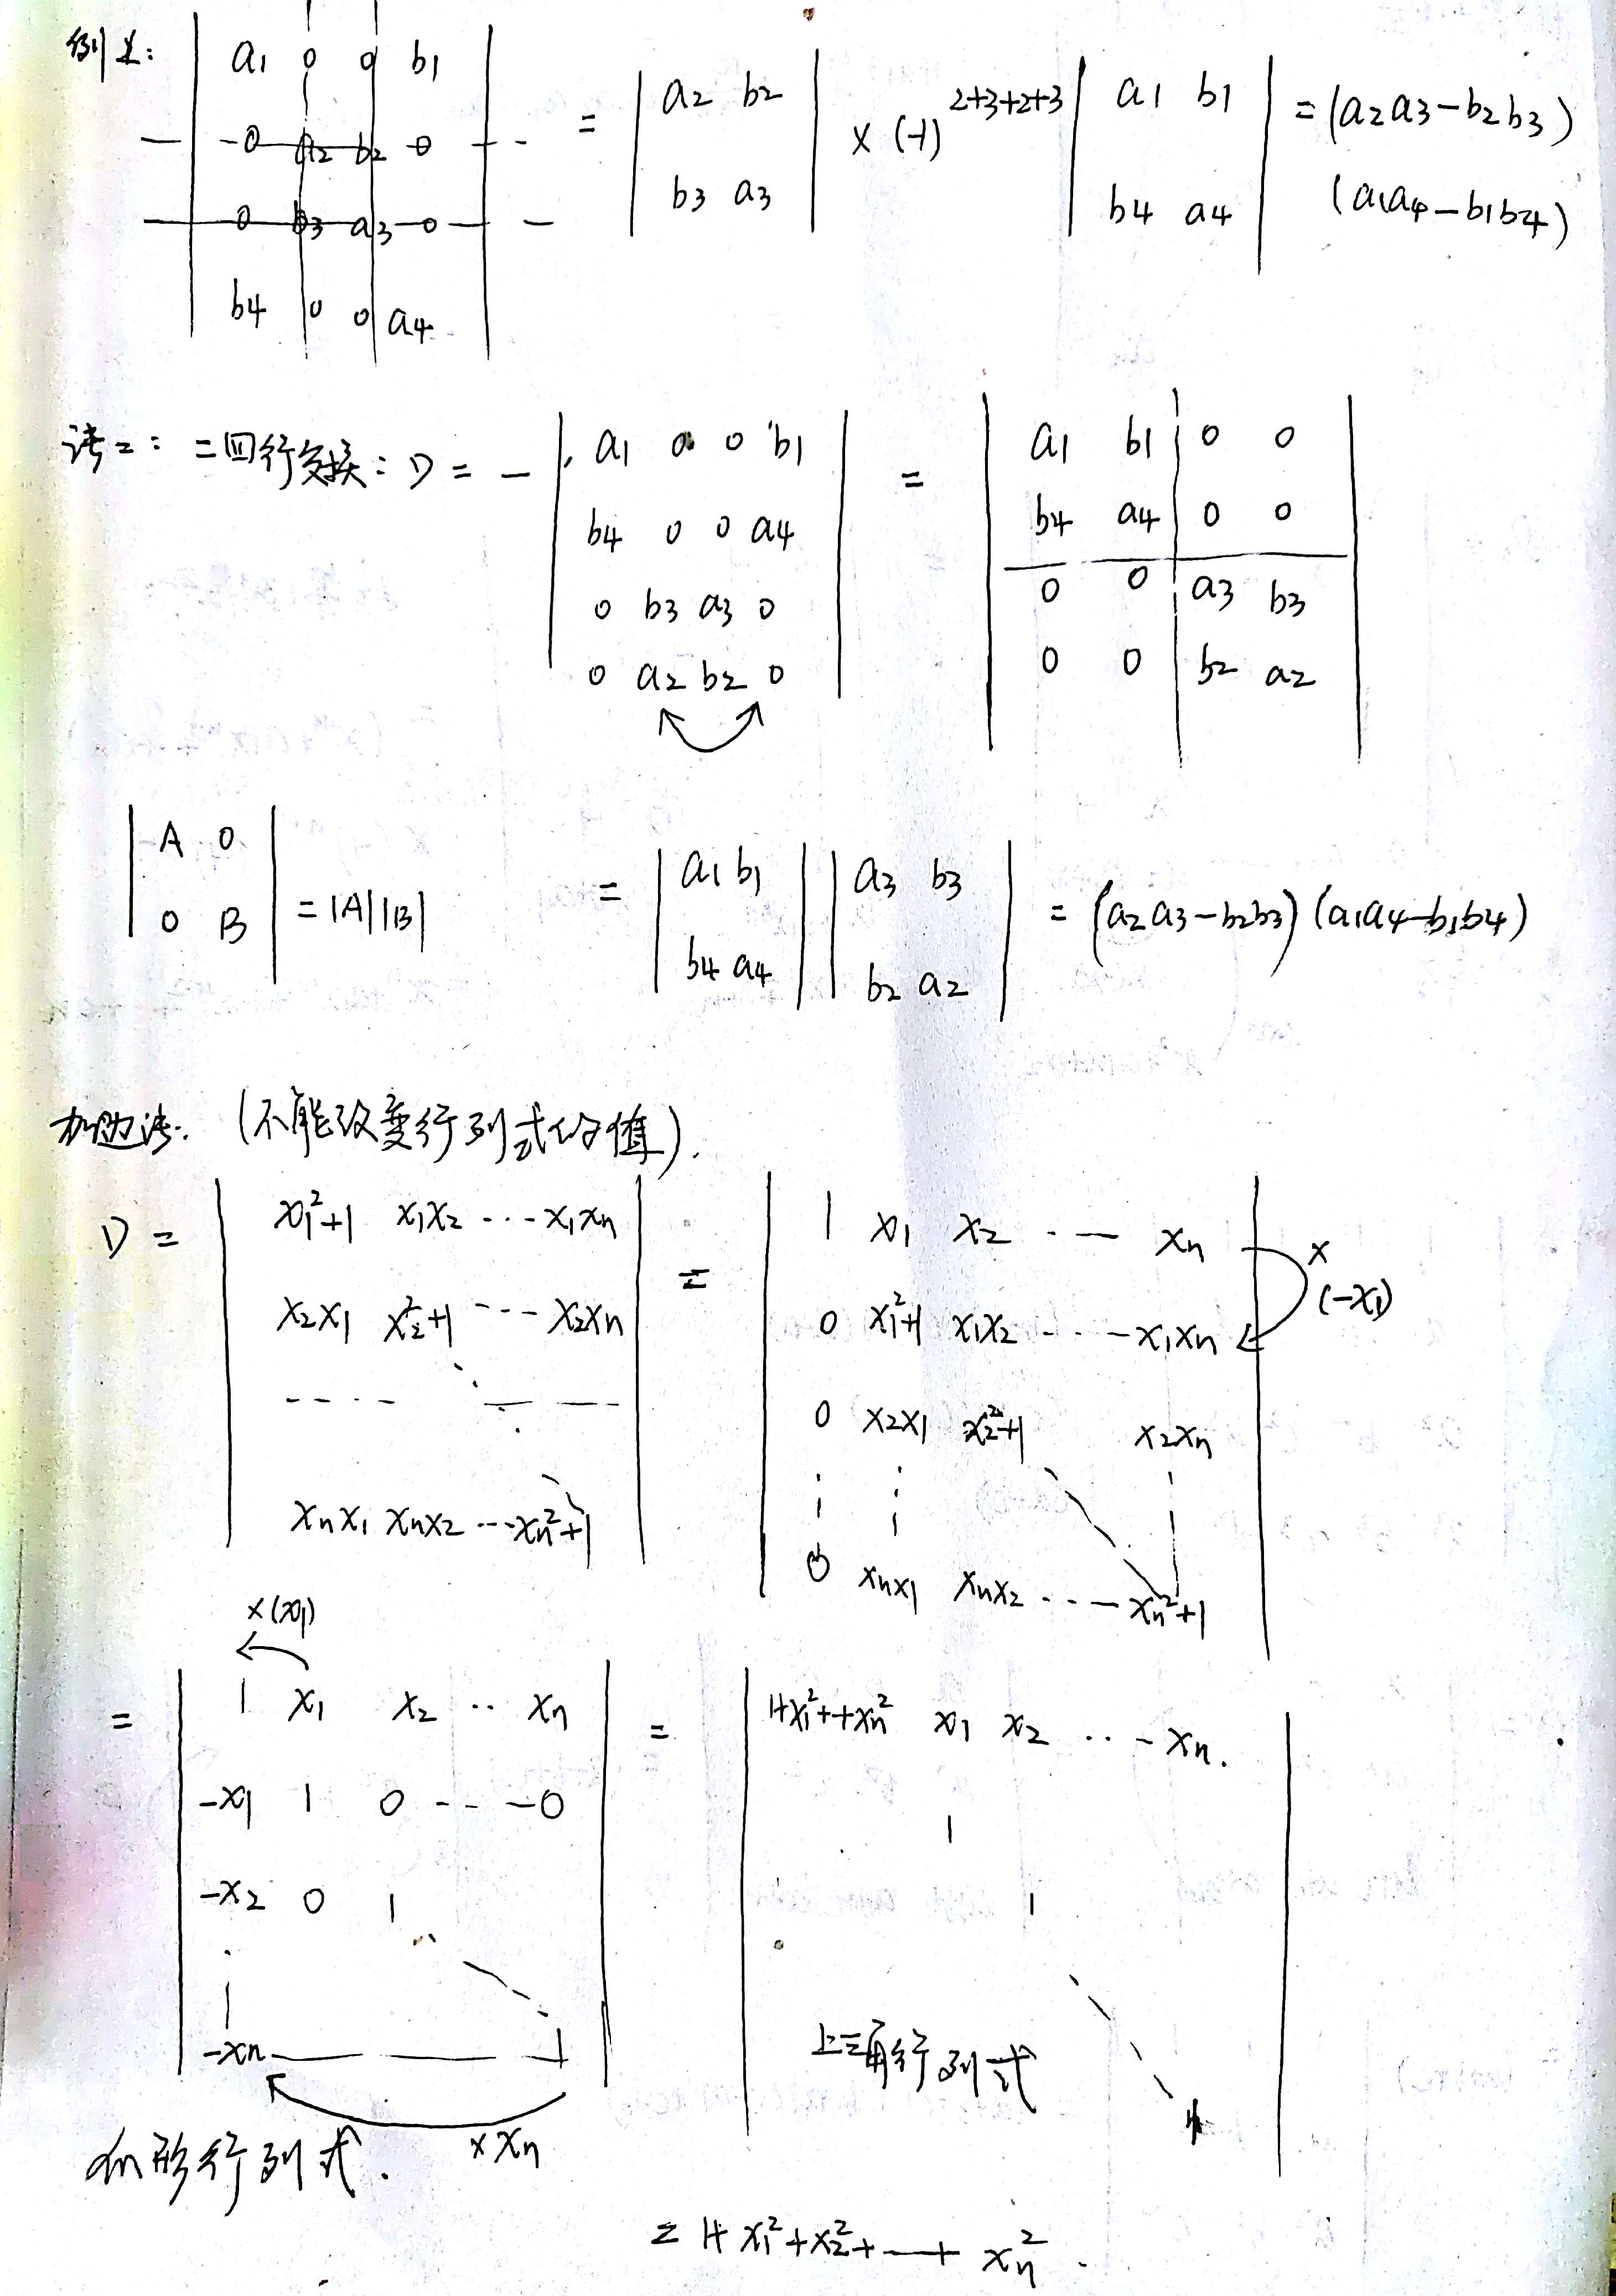 例1: | a1 0 0 b1 |
| 0 a2 b2 0 |
| 0 b3 a3 0 |
| b4 0 0 a4 |
= | a2 b2 |
| b3 a3 |
× (-1)^{2+3+2+3} | a1 b1 |
| b4 a4 |
= (a2a3-b2b3)
(a1a4-b1b4)
法二: 二四行交换: D = - | a1 0 0 b1 |
| b4 0 0 a4 |
| 0 b3 a3 0 |
| 0 a2 b2 0 |
= | a1 b1 0 0 |
| b4 a4 0 0 |
| 0 0 a3 b3 |
| 0 0 b2 a2 |
| A 0 |
| 0 B | = |A||B|
= | a1 b1 | | a3 b3 |
| b4 a4 | | b2 a2 |
= (a2a3-b2b3)(a1a4-b1b4)
加边法. (不能改变行列式的值).
D = | x1²+1 x1x2 ··· x1xn |
| x2x1 x2²+1 ··· x2xn |
| ---- ---- |
| xnx1 xnx2 ··· xn²+1 |
= | 1 x1 x2 ··· xn | ×(-x1)
| 0 x1²+1 x1x2 ··· x1xn |
| 0 x2x1 x2²+1 x2xn |
| 0 xnx1 xnx2 ··· xn²+1 |
×(x1)
= | 1 x1 x2 ·· xn |
| -x1 1 0 ··· 0 |
| -x2 0 1 |
| -xn 1 |
×xn
爪形行列式.
= | 1+x1²++xn² x1 x2 ··· xn. |
1
1
上三角行列式
1
= 1+x1²+x2²+—+xn².